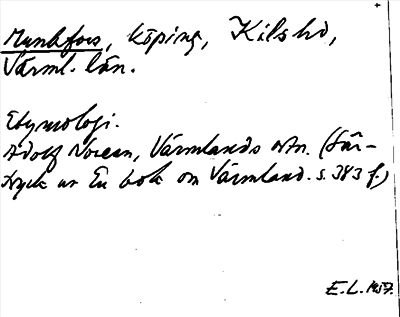 Munkfors, köping, Kils hd,
Värml. län.
Etymologi.
Adolf Noreen, Värmlands ortn. (Sär-
tryck ur En bok om Värmland. s. 383 f.)
E.L. 1957.